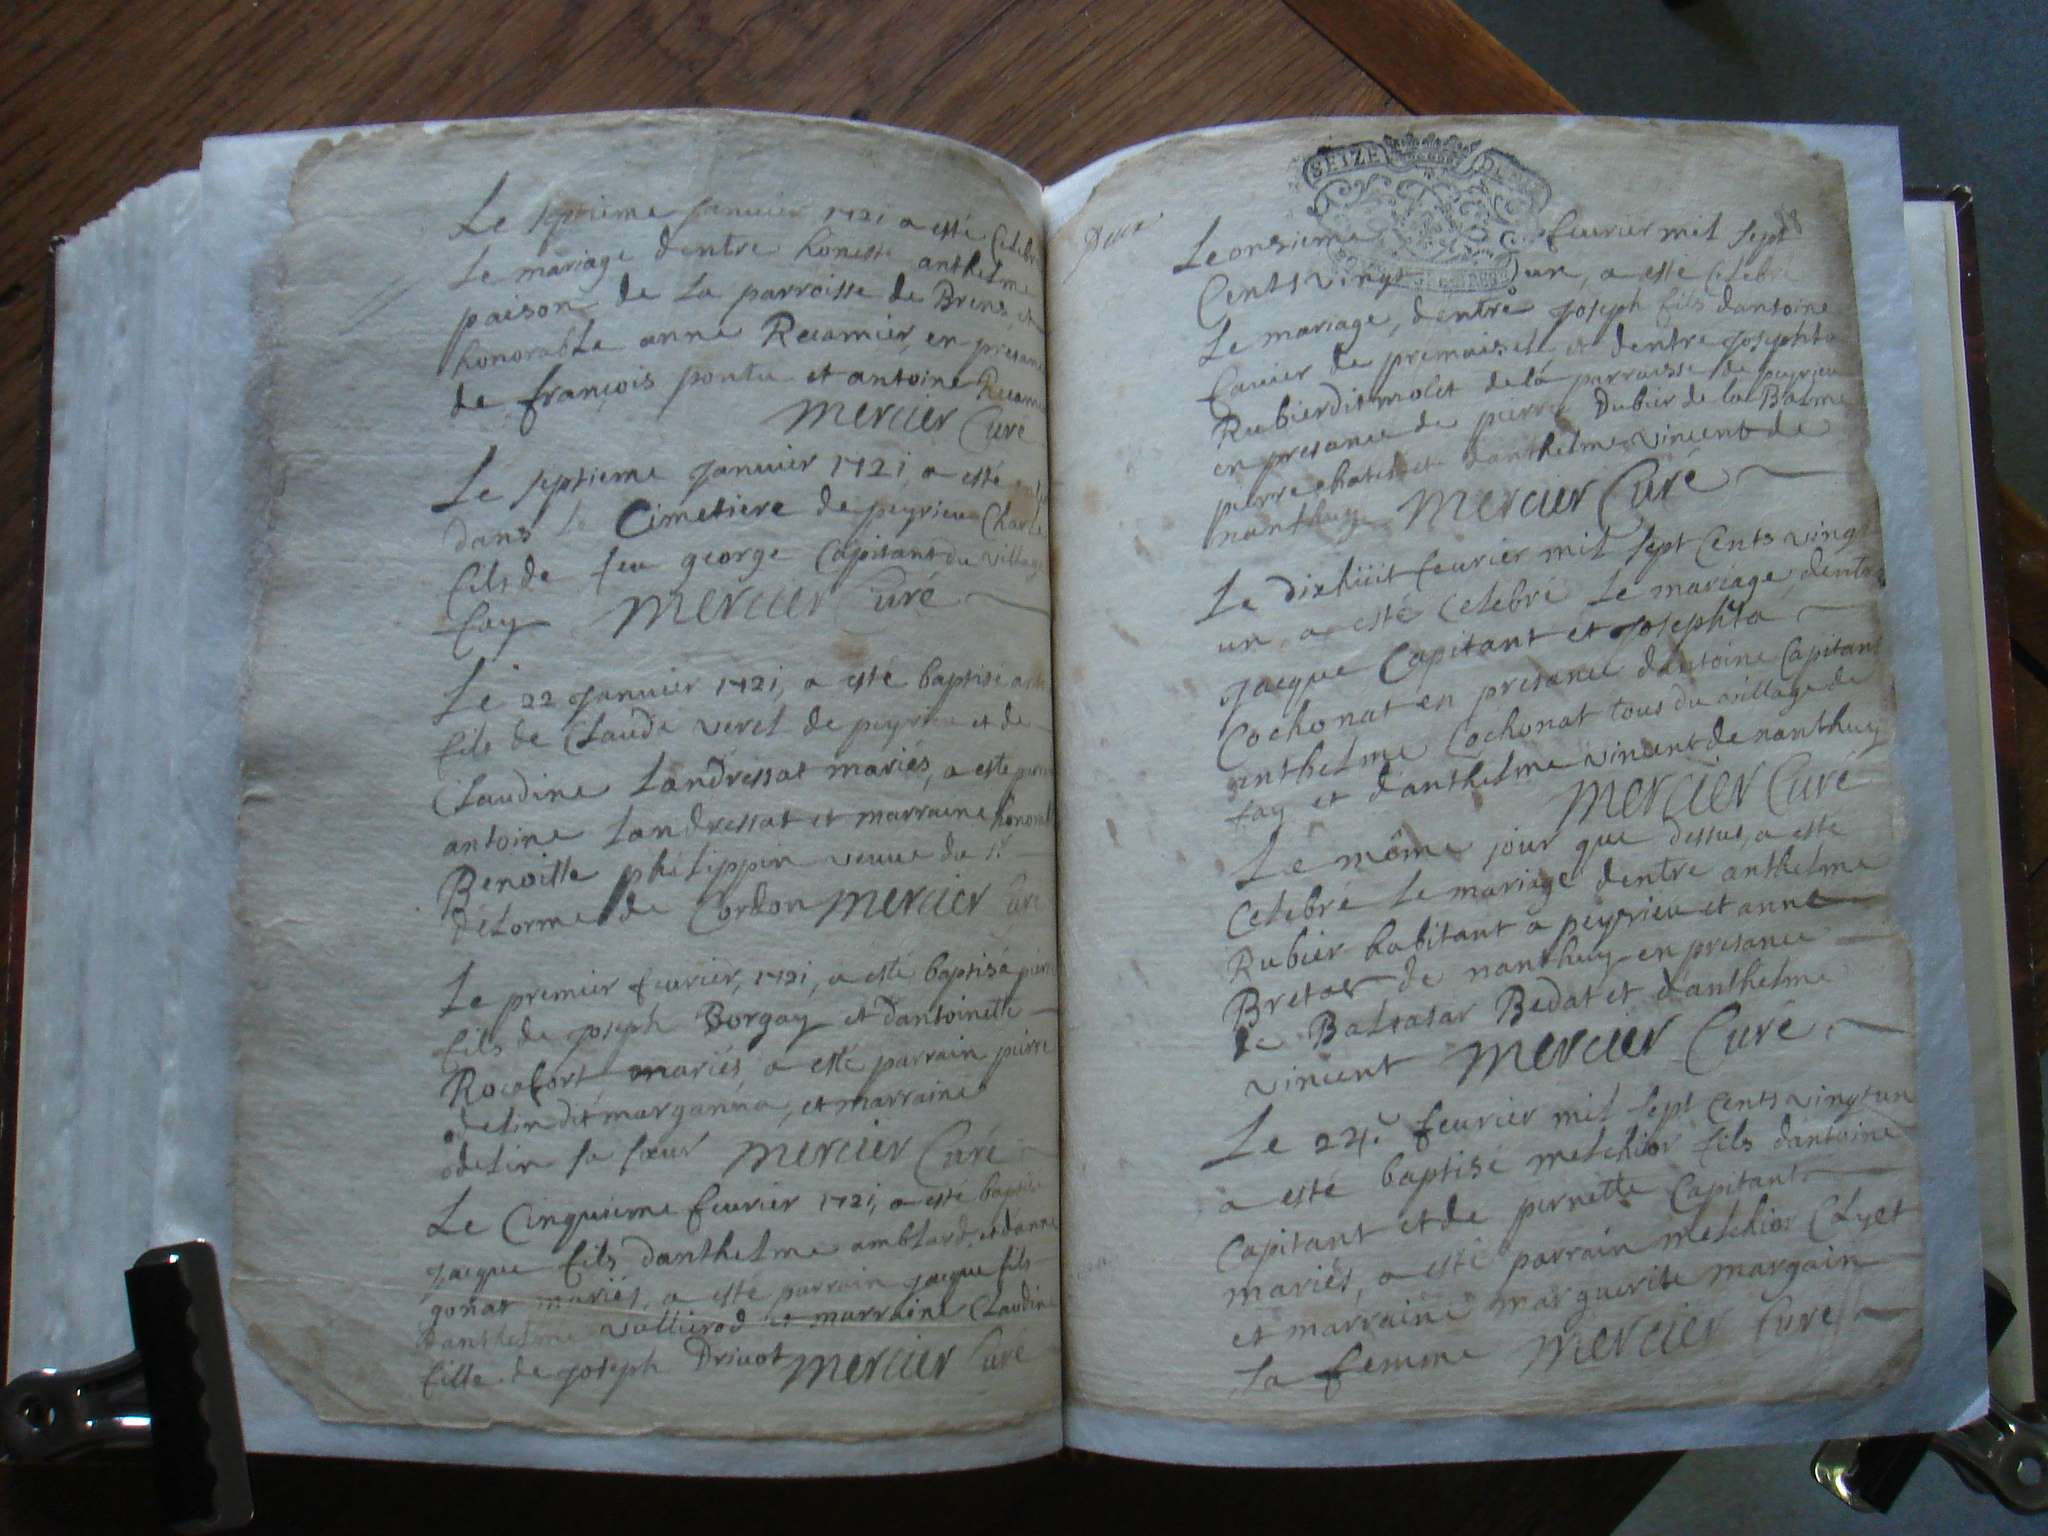 Le septieme Janvier 1721 a esté Celebré
Le mariage dentre honeste anthelme
paison de La parroisse de Brens, et
honorable anne Recamier, en presance
de françois pontu et antoine Recamier
mercier Curé
Le septieme Janvier 1721 a esté
dans le Cimetiere de peyrieu Charle
fils de feu george Capitant du village
fay mercier Curé
Le 22 Janvier 1721, a esté baptisé
fils de Claude veret de peyrieu et de
Claudine Landressat mariés, a esté
antoine Landressat et marraine
Benoitte philippin veuve du Sr
deLorme de Cordon mercier Curé
Le premier feuvrier, 1721, a esté baptisé pierre
fils de joseph Borgay et dantoinette
Rocafort mariés, a esté parrain pierre
odelin dit marganna, et marraine
odelin sa soeur mercier Curé
Le Cinquieme feurier 1721, a esté baptisé
jacque fils danthelme amblard, et danne
gonat mariés, a esté parrain jacque fils
danthelme vullierod et marraine Claudine
fille de joseph Drivot mercier Curé
SEIZE DEN
Deux
78
Le onzieme feurier mil sept
Cents vingt un, a esté celebré
Le mariage, dentre joseph fils dantoine
Cavier de premaisel et dentre josephta
Rubier dit molet de la parroisse de peyrieu
en presance de pierre Dubier de la Balme
pierre chatel et danthelme vincent de
nanthuy mercier Curé
Le dixhüit feurier mil sept Cents vingt
un, a esté Celebré Le mariage, dentre
jacque Capitant et josephta
Cochonat en presance dantoine Capitant
anthelme Cochonat tous du village de
fay et danthelme vincent de nanthuy
mercier Curé
Le même jour que dessus, a esté
Celebré Le mariage dentre anthelme
Rubier habitant a peyrieu et anne
Bretor de nanthuy en presance
de Baltasar Bedat et danthelme
vincent mercier Curé
Le 24e feurier mil sept Cents vingt un
a esté baptisé melchior fils dantoine
Capitant et de pernette Capitant
mariés, a esté parrain melchior Clyet
et marraine marguerite margain
sa femme mercier Curé